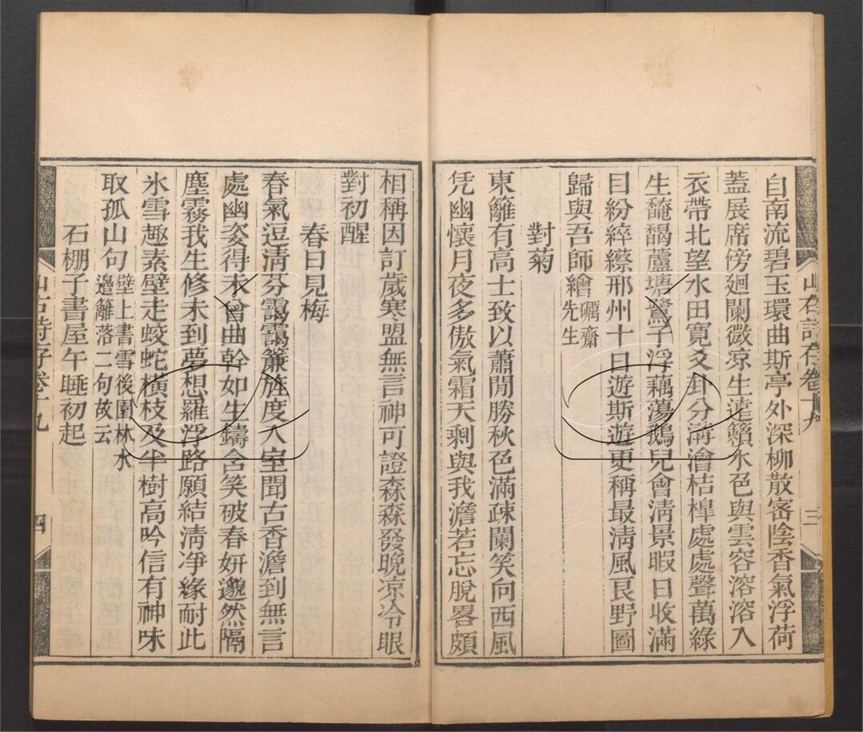 自南流碧玉環曲斯亭外深柳散密陰香氣浮荷
蓋展席傍迴闌微凉生蓮籟水色與雲容溶溶入
衣帶北望水田寬爻卦分溝澮桔槹處處聲萬綠
生靉靆蘆塘鷺子浮藕蕩鵝兒會清景暇日收滿
目紛綷縩邢州十日遊斯遊更稱最清風艮野圖
歸與吾師繪礪齋
先生
對菊
東籬有高士致以蕭閒勝秋色滿疎闌笑向西風
凭幽懷月夜多傲氣霜天剩與我澹若忘脫畧頗
山右詩存卷十九
三
相稱因訂歲寒盟無言神可證森森發晚凉冷眼
對初醒
春日見梅
春氣逗清芬靄靄簾旌度入室聞古香澹到無言
處幽姿得未曾曲幹如生鑄含笑破春妍邈然隔
塵霧我生修未到夢想羅浮路願結清净緣耐此
氷雪趣素壁走蛟蛇橫枝及半樹高吟信有神味
取孤山句壁上書雪後園林水
邊籬落二句故云
石棚子書屋午睡初起
山右詩存卷十九
四